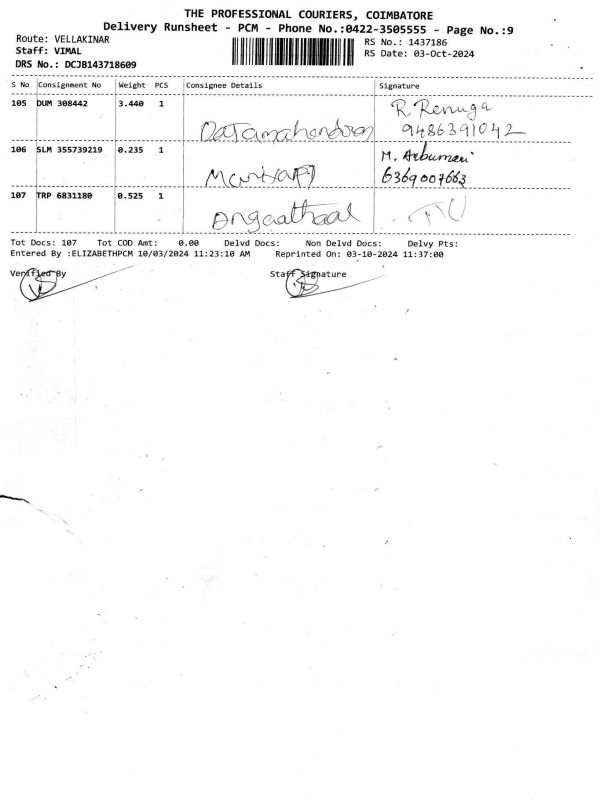 THE PROFESSIONAL COURIERS, COIMBATORE
Delivery Runsheet - PCM - Phone No.:0422-3505555 - Page No.:9
Route: VELLAKINAR
RS No.: 1437186
Staff: VIMAL
RS Date: 03-Oct-2024
DRS No.: DCJB143718609
S No Consignment No Weight PCS Consignee Details Signature
105 DUM 308442 3.440 1 R Renuga
9486391042
106 SLM 355739219 0.235 1 M. Arbumani
6369007663
107 TRP 6831180 0.525 1
Angaathaal
Tot Docs: 107 Tot COD Amt: 0.00 Delvd Docs: Non Delvd Docs: Delvy Pts:
Entered By :ELIZABETHPCM 10/03/2024 11:23:10 AM Reprinted On: 03-10-2024 11:37:00
Verified By Staff Signature